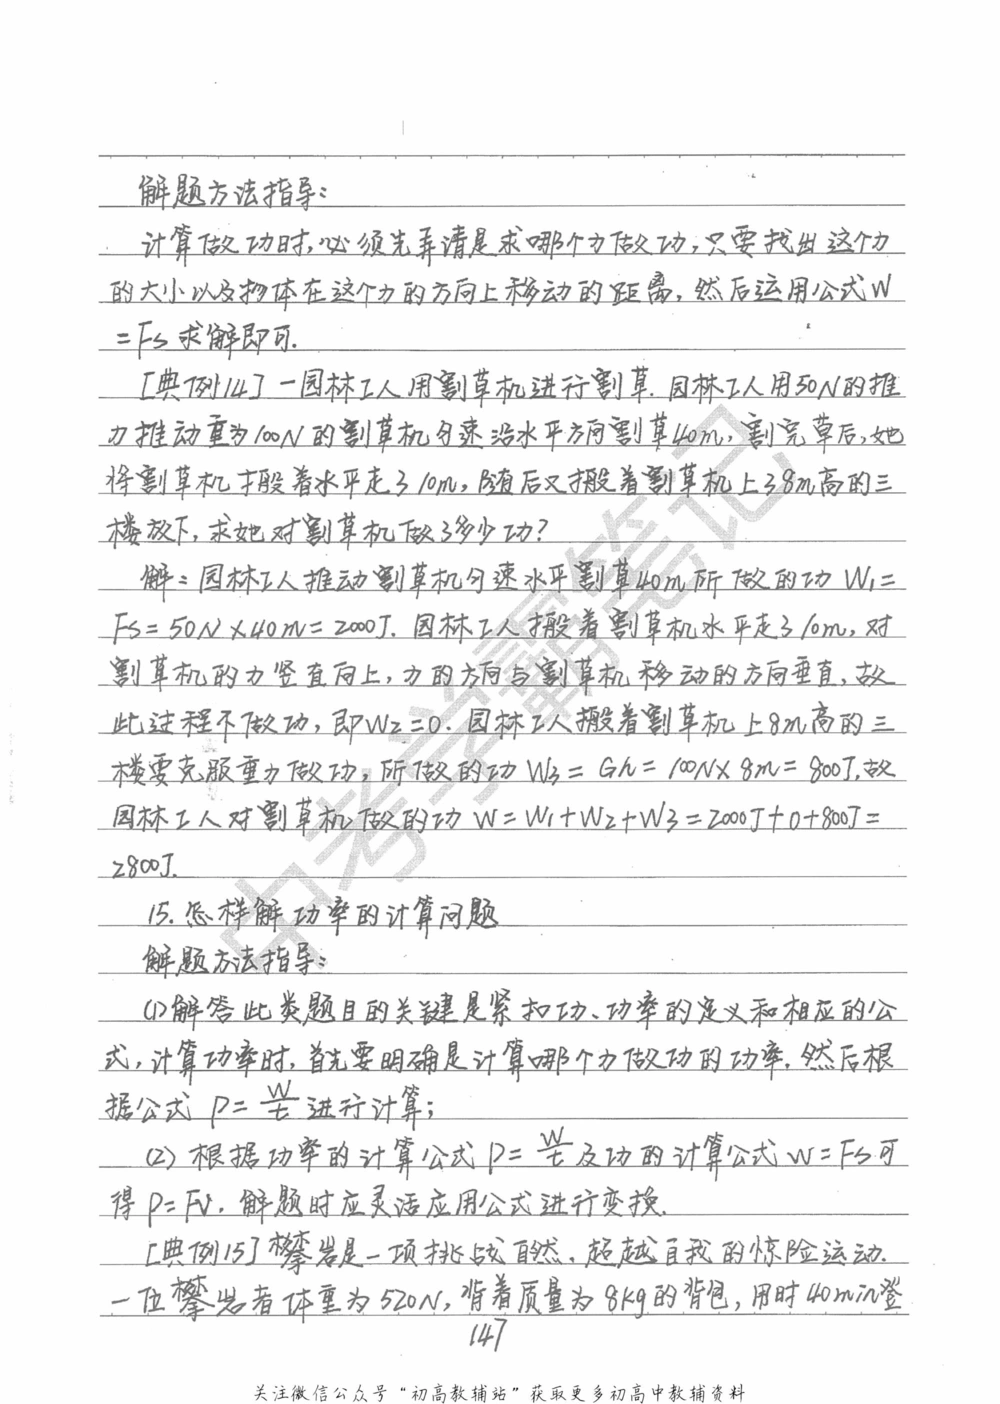 解题方法指导:
计算做功时,必须先弄清是求哪个力做功,只要找出这个力
的大小以及物体在这个力的方向上移动的距离,然后运用公式W
=Fs求解即可.
[典例14]一园林工人用割草机进行割草.园林工人用50N的推
力推动重为100N的割草机匀速沿水平方向割草40m,割完草后,她
将割草机搬着水平走了10m,随后又搬着割草机上了8m高的三
楼放下,求她对割草机做了多少功?
解:园林工人推动割草机匀速水平割草40m所做的功W₁=
Fs=50N×40m=2000J.园林工人搬着割草机水平走了10m,对
割草机的力竖直向上,力的方向与割草机移动的方向垂直,故
此过程不做功,即W₂=0.园林工人搬着割草机上8m高的三
楼要克服重力做功,所做的功W₃=Gh=100N×8m=800J,故
园林工人对割草机做的功W=W₁+W₂+W₃=2000J+0+800J=
2800J.
15.怎样解功率的计算问题
解题方法指导:
(1)解答此类题目的关键是紧扣功、功率的定义和相应的公
式,计算功率时,首先要明确是计算哪个力做功的功率,然后根
据公式P=W/t进行计算;
(2)根据功率的计算公式P=W/t及功的计算公式W=Fs可
得P=Fv.解题时应灵活应用公式进行变换.
[典例15]攀岩是一项挑战自然、超越自我的惊险运动.
一位攀岩者体重为520N,背着质量为8kg的背包,用时40min登
147
关注微信公众号“初高教辅站”获取更多初高中教辅资料
中考学霸笔记